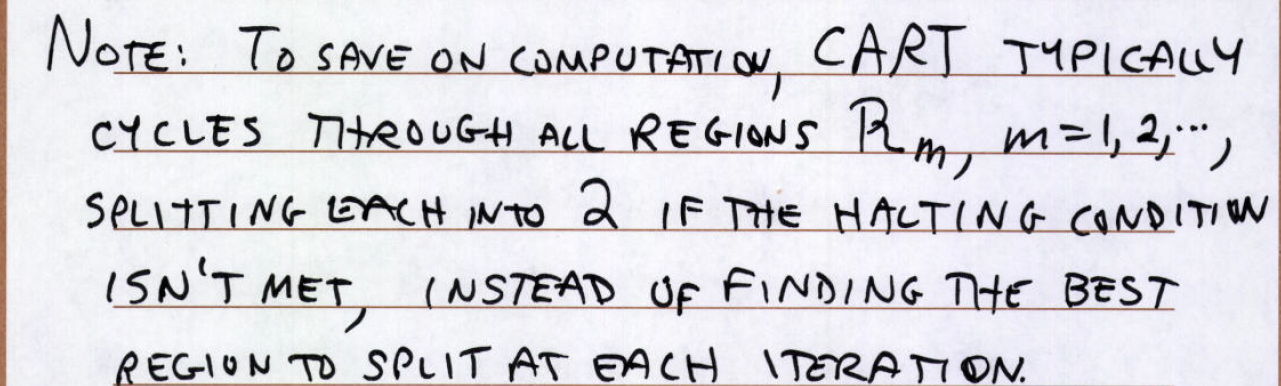 NOTE: TO SAVE ON COMPUTATION, CART TYPICALLY
CYCLES THROUGH ALL REGIONS Rm, m=1,2,...,
SPLITTING EACH INTO 2 IF THE HALTING CONDITION
ISN'T MET, INSTEAD OF FINDING THE BEST
REGION TO SPLIT AT EACH ITERATION.